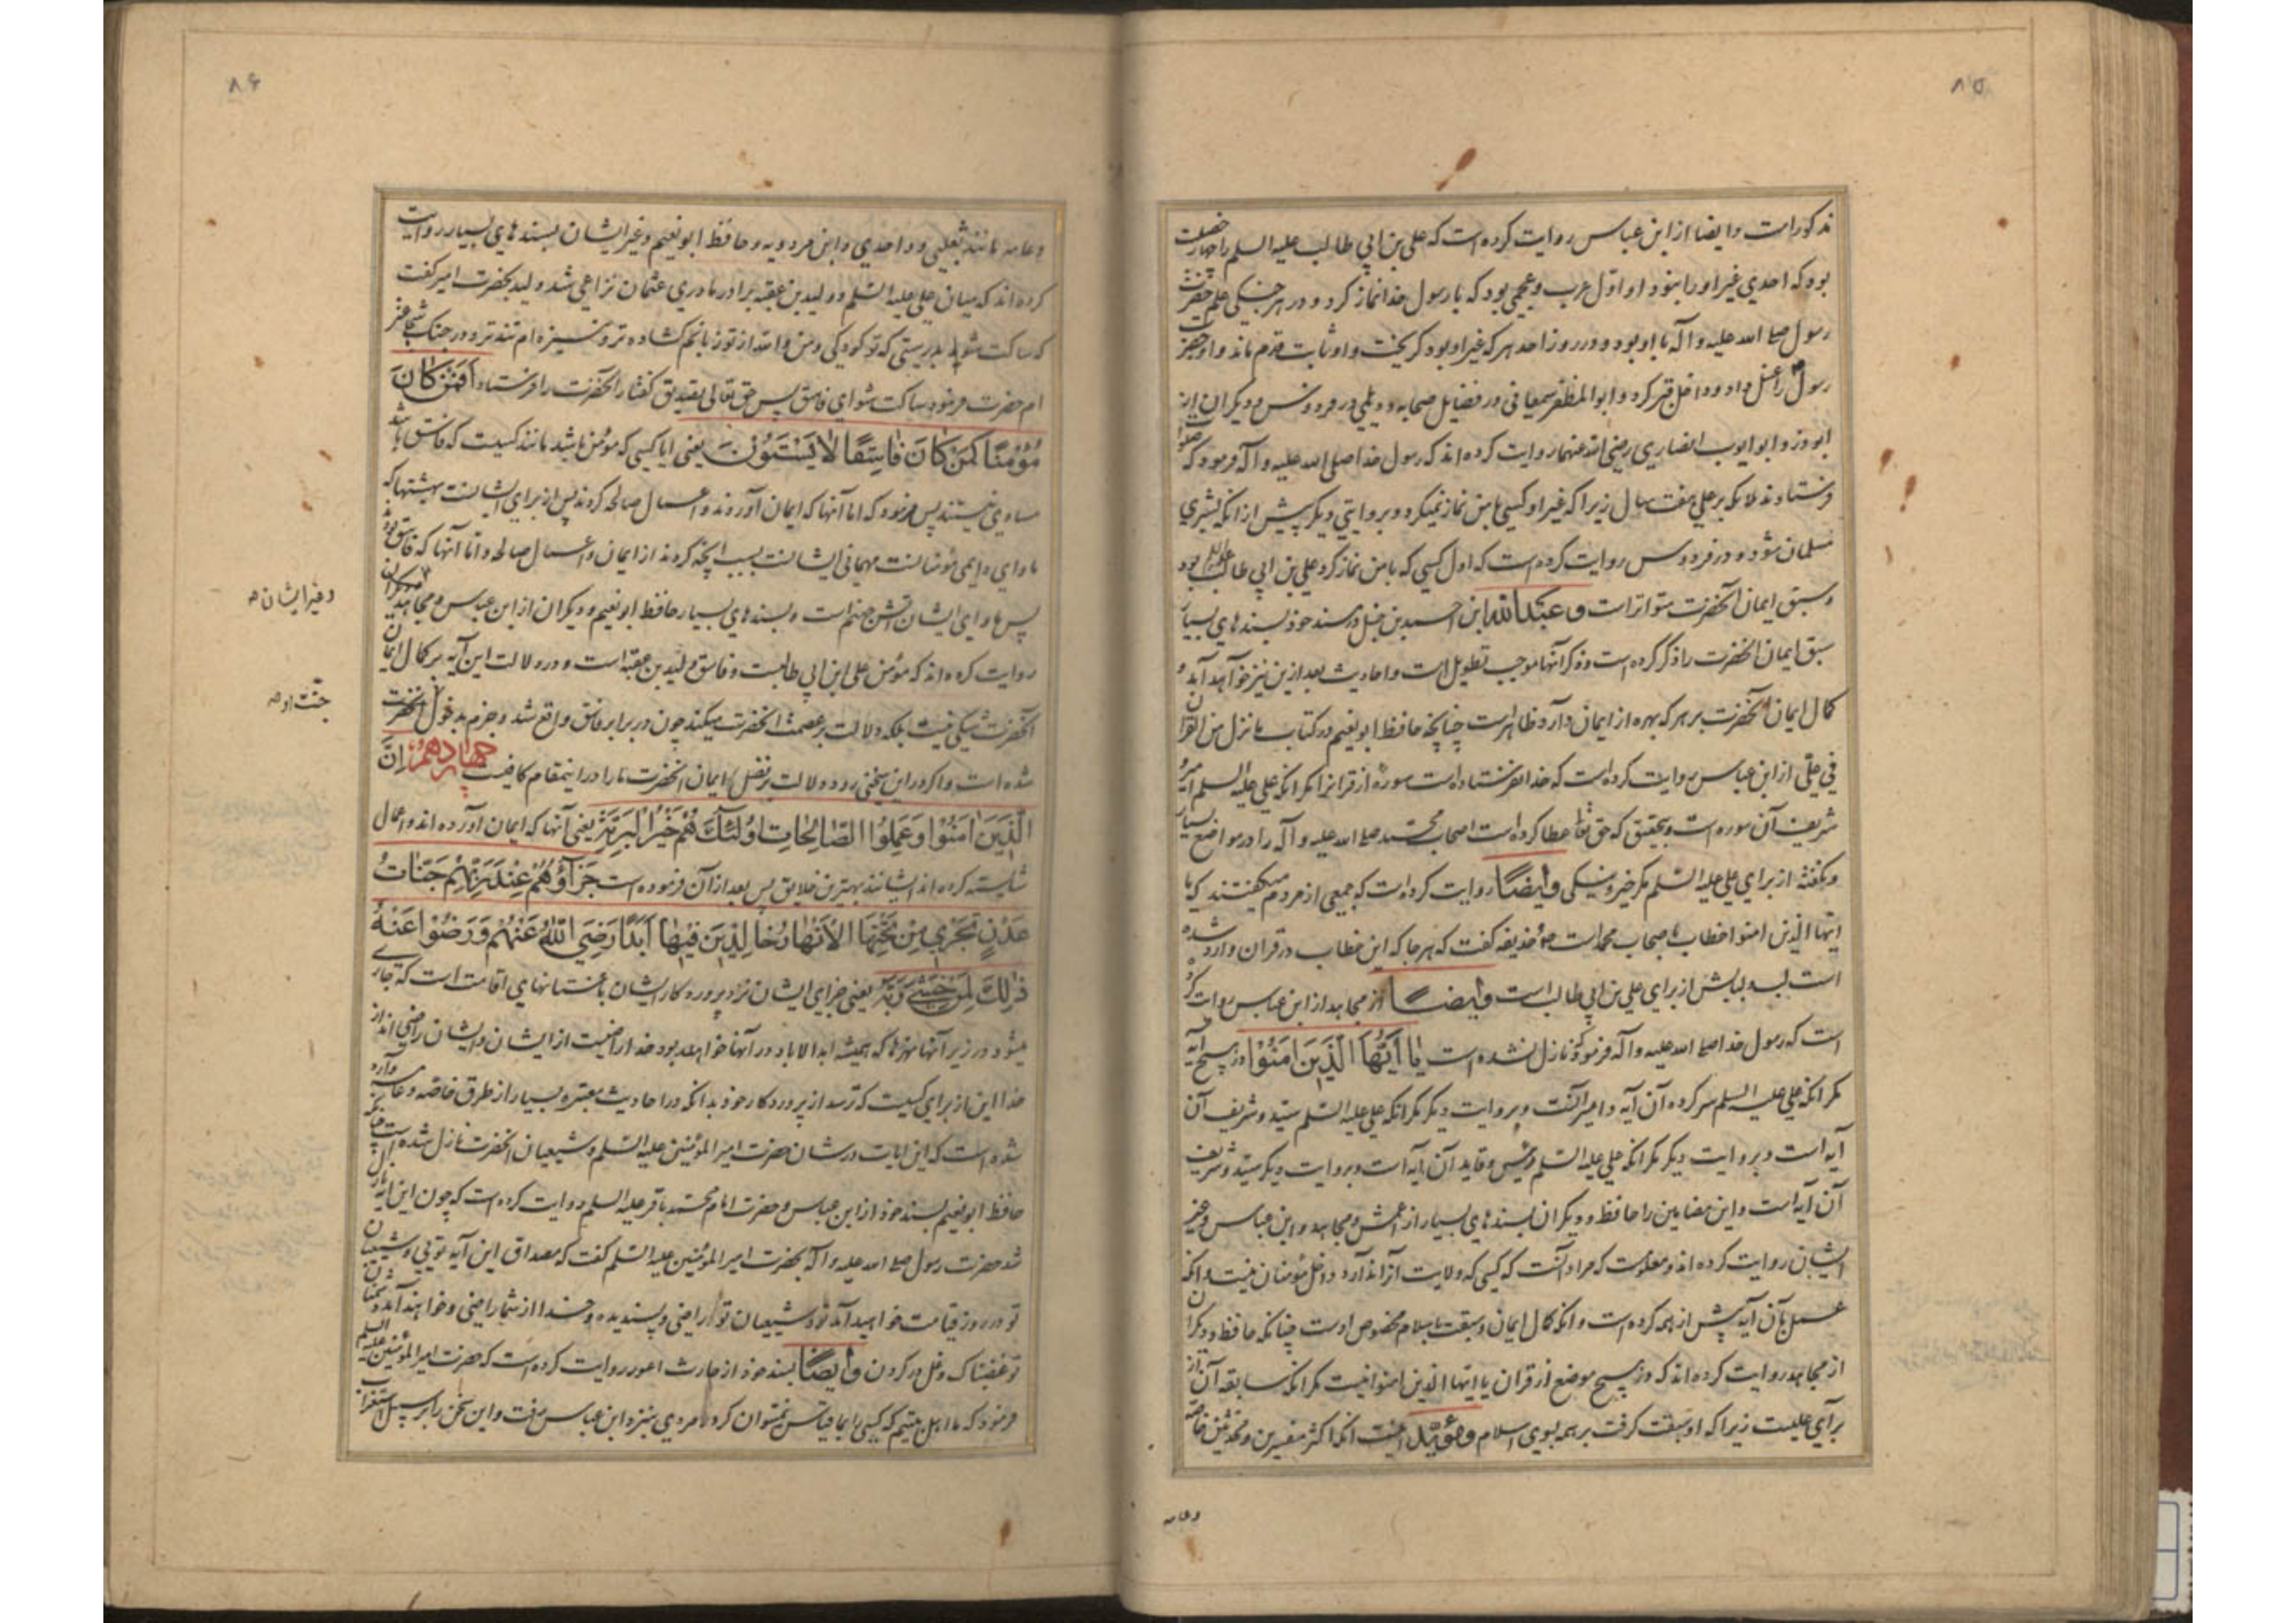 ۸۵
مذکور است و ایضا از ابن عباس روایت کرده است که علی بن ابی طالب علیه السلم را چهار خصلت
بود که احدی غیر او را نبود او اول عرب و عجمی بود که با رسول خدا نماز کرد و در هر جنگی علم حضرت
رسول صلی الله علیه و آله با او بود و در روز احد هر که غیر او بود گریخت و او ثابت قدم ماند و او حضرت
رسول را غسل داد و داخل قبر کرد و ابو المظفر سمعانی در فضایل صحابه و دیلمی در فردوس و دیگران از
ابوذر و ابو ایوب انصاری رضی الله عنهما روایت کرده اند که رسول خدا صلی الله علیه و آله فرمود که صلوا
فرستادند ملائکه بر علی هفت سال زیرا که غیر او کسی با من نماز نمیکرد و بروایتی دیگر پیش از انکه بشری
مسلمان شود و در فردوس روایت کرده است که اول کسی که با من نماز کرد علی بن ابی طالب بود
و سبق ایمان آنحضرت متواتر است و عبد الله ابن احمد بن حنبل در مسند خود بسند های بسیار
سبق ایمان انحضرت را ذکر کرده است و ذکر آنها موجب تطویل است و احادیث بعد ازین نیز خواهد آمد و
کمال ایمان آنحضرت بر هر که بهره از ایمان دارد ظاهر است چنانچه حافظ ابو نعیم در کتاب ما نزل من القران
فی علی از ابن عباس روایت کرده است که خدا نفرستاده است سوره از قرانرا مگر انکه علی علیه السلم امیر و
شریف آن سوره است و بتحقیق که حق تعا عطا کرده است اصحاب محمد صلی الله علیه و آله را در مواضع بسیار
و نگفته از برای علی علیه السلم مگر خیر و نیکی و ایضا روایت کرده است که جمعی از مردم میگفتند که یا
ایها الذین امنوا خطاب با صحاب محمد است حذیفه گفت که هر جا که این خطاب در قران وارد شده
است لب و لبابش از برای علی بن ابی طالب است و ایضا از مجاهد از ابن عباس روایت کرده
است که رسول خدا صلی الله علیه و آله فرمود که نازل نشده است یا ایها الذین امنوا در هیچ آیه
مگر انکه علی علیه السلم سر کرده آن آیه و امیر آنست و بروایت دیگر مگر انکه علی علیه السلم سید و شریف آن
آیه است و بروایت دیگر مگر انکه علی علیه السلم رئیس و قاید آن آیه است و بروایت دیگر سید و شریف
آن آیه است و این مضامین را حافظ و دیگران بسند های بسیار از اعمش و مجاهد و ابن عباس و غیر
ایشان روایت کرده اند و معلومست که مراد آنست که کسی که ولایت آنرا ندارد داخل مؤمنان نیست و انکه
عمل بآن آیه پیش از همه کرده است و انکه کمال ایمان و سبقت باسلام مخصوص اوست چنانکه حافظ و دیگران
از مجاهد روایت کرده اند که در هیچ موضع از قران یا ایها الذین امنوا نیست مگر انکه سابقه آن از
برای علیست زیرا که او سبقت گرفت بر همه بسوی اسلام و مؤید اینست انکه اکثر مفسرین و محدثین خاصه
وعامه
۸۶
و عامه مانند ثعلبی و واحدی و ابن مردویه و حافظ ابو نعیم و غیر ایشان بسند های بسیار روایت
کرده اند که میان علی علیه السلم و ولید بن عقبه برادر مادری عثمان نزاعی شد ولید بحضرت امیر گفت
که ساکت شو بدرستی که تو کودکی و من والله از تو زبانم گشاده تر و نیزه ام تندتر و در جنگ شجاعتر
ام حضرت فرمود ساکت شو ای فاسق پس حق تعالی بتصدیق گفتار آنحضرت را فرستاد افمن کان
مؤمنا کمن کان فاسقا لا یستوون یعنی ایا کسی که مؤمن باشد مانند کسیست که فاسق باشد
مساوی نیستند پس فرمود که اما آنها که ایمان آوردند و اعمال صالحه کردند پس از برای ایشانست بهشتها که
ماوای دایمی مؤمنانست مهمانی ایشانست بسبب آنچه کردند از ایمان و اعمال صالحه و اما آنها که فاسق بودند
پس ماوای ایشان آتش جهنم است و بسند های بسیار حافظ ابو نعیم و دیگران از ابن عباس و مجاهد و دیگران
روایت کرده اند که مؤمن علی ابن ابی طالبست و فاسق ولید بن عقبه است و در دلالت این آیه بر کمال ایمان
آنحضرت شکی نیست بلکه دلالت بر عصمت انحضرت میکند چون در برابر فاسق واقع شد و جزم بدخول آنحضرت
شده است و اگر در این سخنی رود دلالت بر فضل ایمان انحضرت ما را در اینمقام کافیست چهاردهم ان
الذین امنوا و عملوا الصالحات اولئک هم خیر البریة یعنی آنها که ایمان آورده اند و اعمال
شایسته کرده اند ایشانند بهترین خلایق پس بعد از آن فرموده است جزاؤهم عند ربهم جنات
عدن تجری من تحتها الانهار خالدین فیها ابدا رضی الله عنهم و رضوا عنه
ذلک لمن خشی ربه یعنی جزای ایشان نزد پروردکار ایشان باغستانهای اقامت است که جاری
میشود در زیر آنها نهرها که همیشه ابد الاباد در آنها خواهند بود خدا راضیست از ایشان و ایشان راضی اند از
خدا این از برای کسیست که ترسد از پروردکار خود بدانکه در احادیث معتبره بسیار از طرق خاصه و عامه وارد
شده است که این ایات در شان حضرت امیر المؤمنین علیه السلم و شیعیان انحضرت نازل شده است چنانکه
حافظ ابو نعیم بسند خود از ابن عباس و حضرت امام محمد باقر علیه السلم روایت کرده است که چون این آیه نازل
شد حضرت رسول صلی الله علیه و آله بحضرت امیر المؤمنین علیه السلم گفت که مصداق این آیه تویی و شیعیان
تو در روز قیامت خواهید آمد تو و شیعیان تو راضی و پسندیده و خدا از شما راضی و خواهند آمد دشمنان
تو غضبناک و غل در گردن و ایضا بسند خود از حارث اعور روایت کرده است که حضرت امیر المؤمنین علیه السلم
فرمود که ما اهل بیتیم که کسی را بما قیاس نمیتوان کرد مردی بنزد ابن عباس رفت و این سخن را بر سبیل استغراب
و غیر ایشان
جنت او